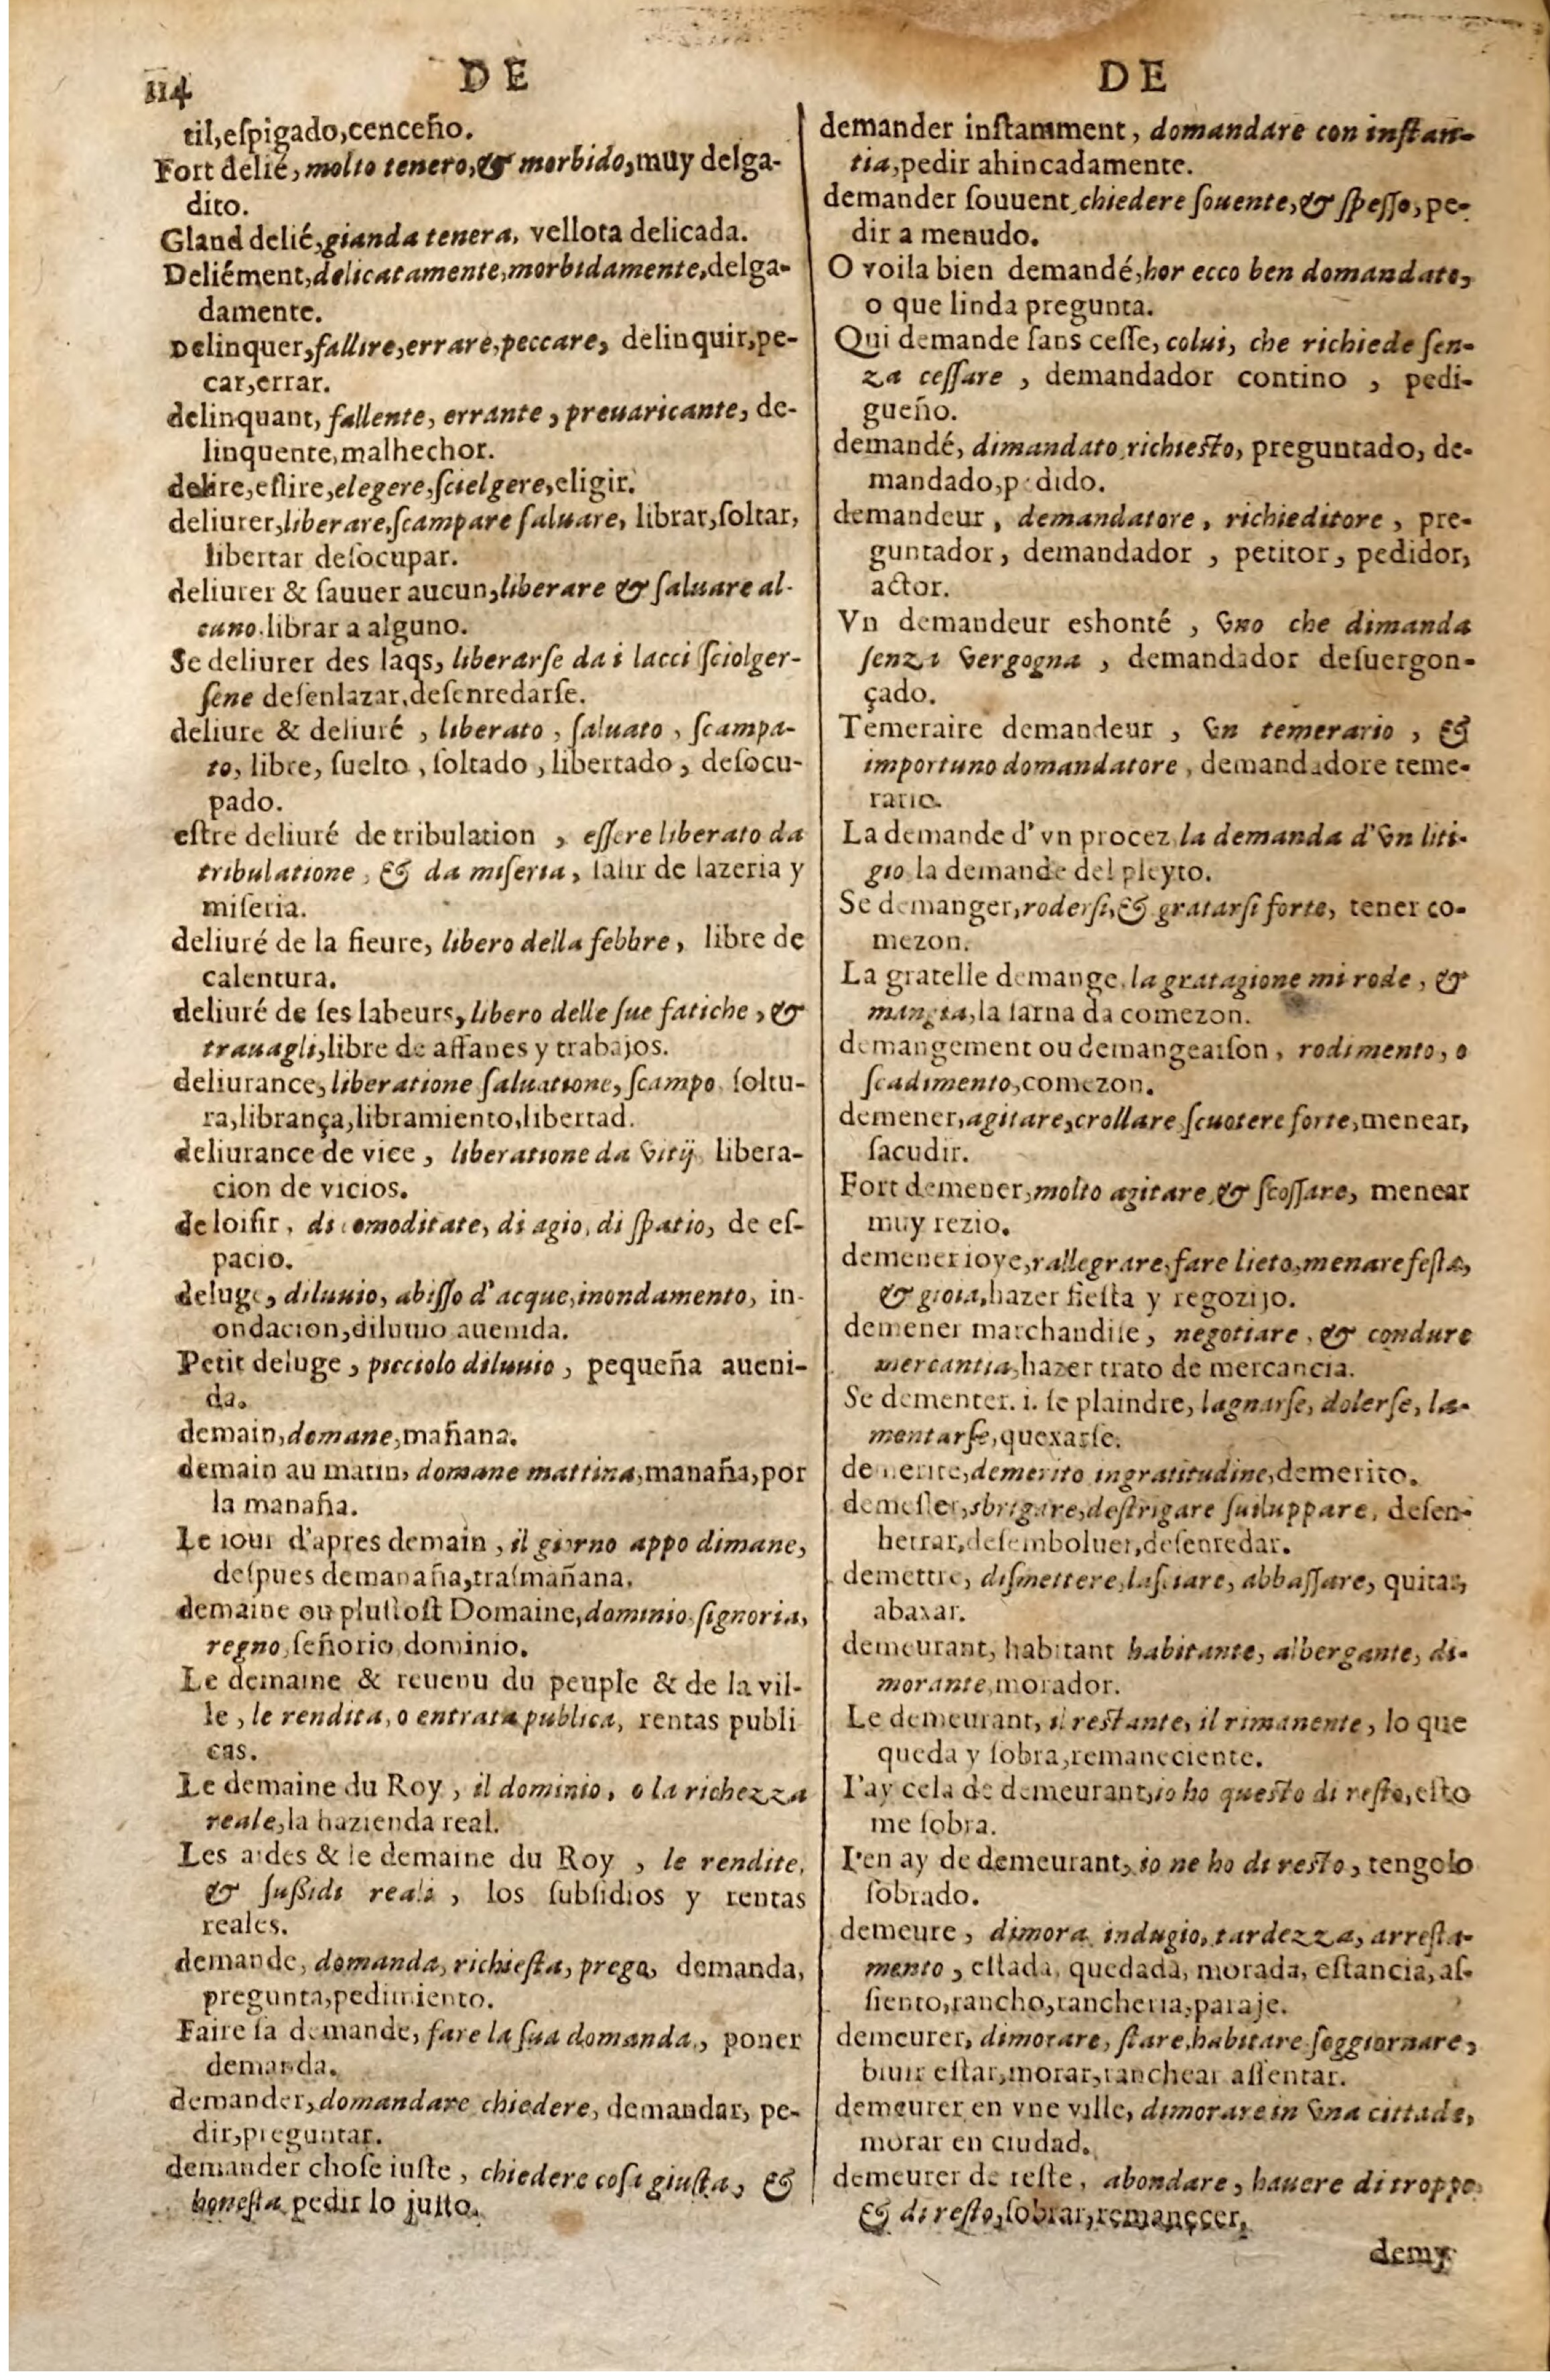 114
DE
DE
til,eſpigado,cenceño.
Fort delié, molto tenero,& morbido,muy delga-
dito.
Gland delié,gianda tenera, vellota delicada.
Deliément,delicatamente,morbidamente,delga-
damente.
Delinquer,fallire,errare,peccare, delinquir,pe-
car,errar.
delinquant, fallente, errante, preuaricante, de-
linquente,malhechor.
delire,eſlire,elegere,ſcielgere,eligir.
deliurer,liberare,ſcampare ſaluare, librar,ſoltar,
libertar deſocupar.
deliurer & ſauuer aucun,liberare & ſaluare al-
cuno.librar a alguno.
Se deliurer des laqs, liberarſe da i lacci ſciolger-
ſene deſenlazar,deſenredarſe.
deliure & deliuré , liberato , ſaluato , ſcampa-
to, libre, ſuelto , ſoltado , libertado, deſocu-
pado.
eſtre deliuré de tribulation , eſſere liberato da
tribulatione , & da miſeria, ſalir de lazeria y
miſeria.
deliuré de la fieure, libero della febbre, libre de
calentura.
deliuré de ſes labeurs, libero delle ſue fatiche , &
trauagli,libre de affanes y trabajos.
deliurance, liberatione ſaluatione, ſcampo ſoltu-
ra,librança,libramiento,libertad.
deliurance de vice , liberatione da vitij, libera-
cion de vicios.
de loiſir, di comoditate, di agio, di ſpatio, de eſ-
pacio.
deluge, diluuio, abiſſo d'acque,inondamento, in-
ondacion,diluuio auenida.
Petit deluge , picciolo diluuio , pequeña aueni-
da.
demain,domane,mañana.
demain au matin, domane mattina,manaña,por
la manaña.
Le iour d'apres demain , il giorno appo dimane,
deſpues demanaña,traſmañana.
demaine ou pluſtoſt Domaine,dominio,ſignoria,
regno,ſeñorio,dominio.
Le demaine & reuenu du peuple & de la vil-
le , le rendita, o entrata publica, rentas publi
cas.
Le demaine du Roy , il dominio, o la richezza
reale,la hazienda real.
Les aides & le demaine du Roy , le rendite,
& ſußidi reali , los ſubſidios y rentas
reales.
demande, domanda, richieſta, prego, demanda,
pregunta,pedimiento.
Faire ſa demande, fare la ſua domanda , poner
demanda.
demander,domandare chiedere, demandar, pe-
dir,preguntar.
demander choſe iuſte , chiedere coſa giuſta, &
honeſta pedir lo juſto.
demander inſtamment, domandare con inſtan-
tia,pedir ahincadamente.
demander ſouuent,chiedere ſouente,& ſpeſſo, pe-
dir a menudo.
O voila bien demandé,hor ecco ben domandato,
o que linda pregunta.
Qui demande ſans ceſſe, colui, che richiede ſen-
za ceſſare , demandador contino , pedi-
gueño.
demandé, dimandato,richieſto, preguntado, de-
mandado,pedido.
demandeur , demandatore , richieditore , pre-
guntador, demandador , petitor, pedidor,
actor.
Vn demandeur eshonté , vno che dimanda
ſenza vergogna , demandador deſuergon-
çado.
Temeraire demandeur , vn temerario , &
importuno domandatore , demandadore teme-
rario.
La demande d'vn procez la demanda d'vn liti-
gio la demande del pleyto.
Se demanger,roderſi,& gratarſi forte, tener co-
mezon.
La gratelle demange,la gratagione mi rode , &
mangia,la ſarna da comezon.
demangement ou demangeaiſon, rodimento, o
ſcadimento,comezon.
demener,agitare,crollare ſcuotere forte,menear,
ſacudir.
Fort demener,molto agitare & ſcoſſare, menear
muy rezio.
demener ioye,rallegrare,fare lieto,menare feſta,
& gioia,hazer fieſta y regozijo.
demener marchandiſe, negotiare , & condure
mercantia,hazer trato de mercancia.
Se dementer. i. ſe plaindre, lagnarſe, dolerſe, la-
mentarſe,quexarſe.
demerite,demerito ingratitudine,demerito.
demeſler,sbrigare,deſtrigare ſuiluppare, deſen-
hetrar,deſemboluer,deſenredar.
demettre, diſmettere,laſciare, abbaſſare, quitar,
abaxar.
demeurant, habitant habitante, albergante, di-
morante,morador.
Le demeurant, il reſtante, il rimanente, lo que
queda y ſobra,remaneciente.
I'ay cela de demeurant,io ho queſto di reſto,eſto
me ſobra.
I'en ay de demeurant, io ne ho di reſto, tengolo
ſobrado.
demeure , dimora, indugio, tardezza, arreſta-
mento , eſtada, quedada, morada, eſtancia, aſ-
ſiento,rancho,rancheria,paraje.
demeurer, dimorare, ſtare,habitare ſoggiornare,
biuir eſtar,morar,ranchear aſſentar.
demeurer en vne ville, dimorare in vna cittade,
morar en ciudad.
demeurer de reſte, abondare, hauere di troppo
& di reſto,ſobrar,remanecer,
demy